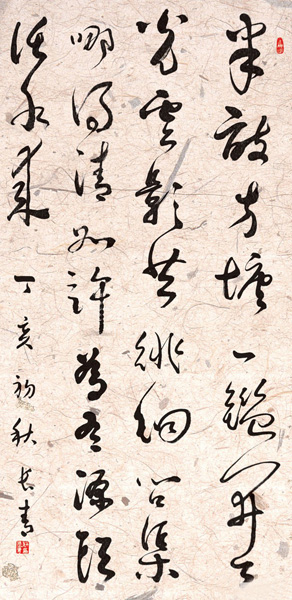 半畝方塘一鑑開天
光雲影共徘徊問渠
哪得清如許為有源頭
活水來
丁亥初秋長青